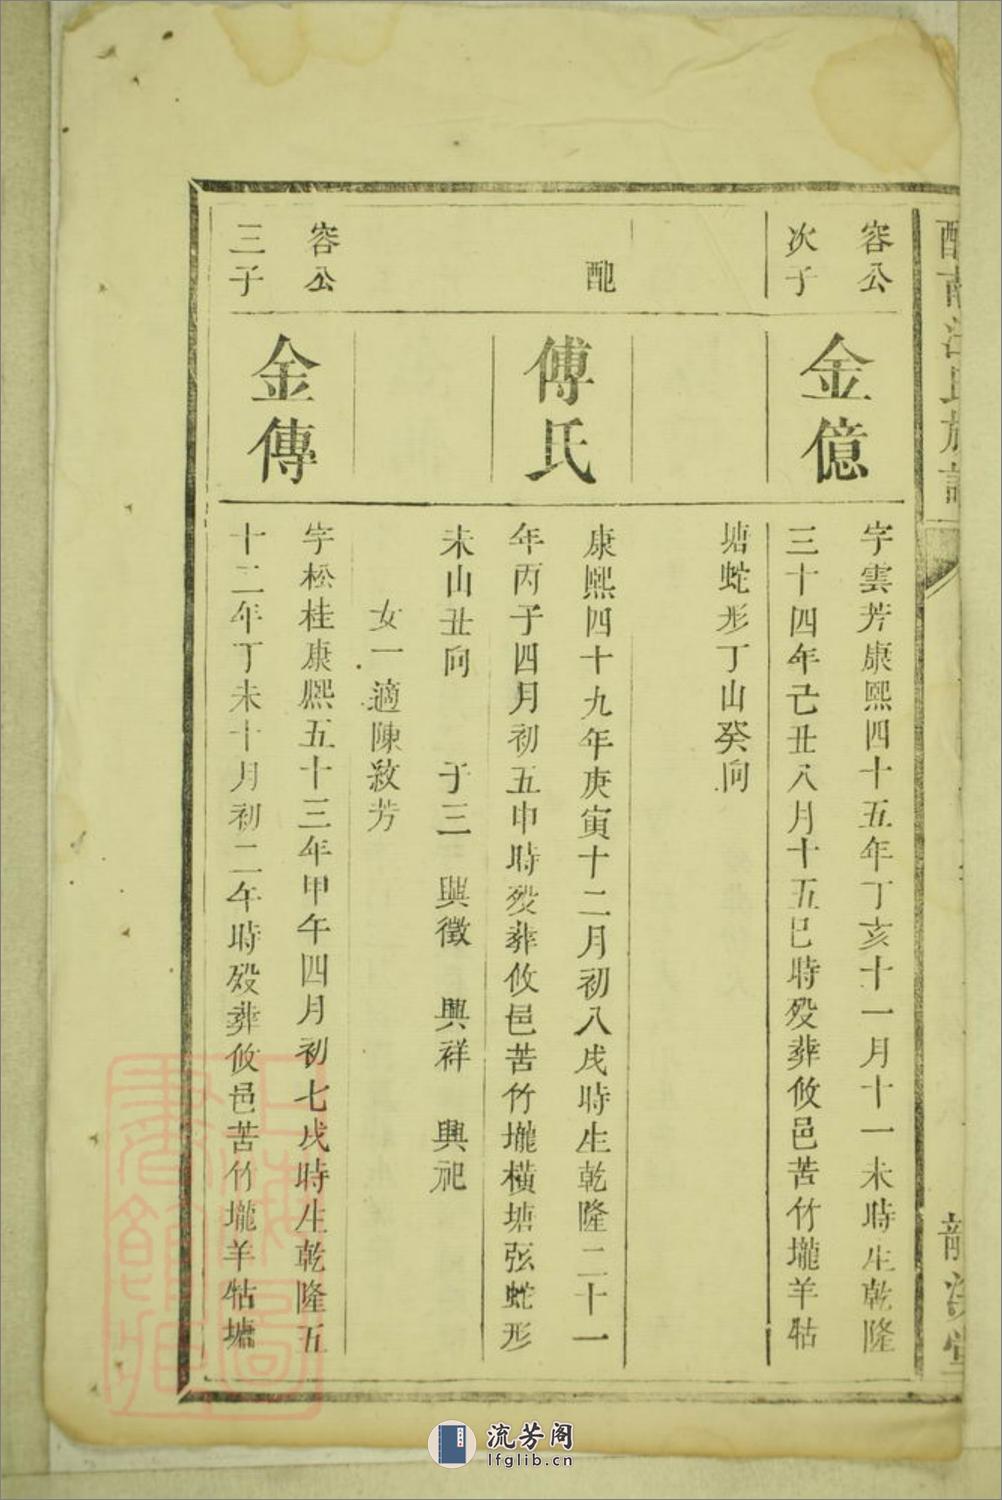 容公
次子
金億
字雲芳康熙四十五年丁亥十一月十一未時生乾隆
三十四年己丑八月十五巳時歿葬攸邑苦竹壠羊牯
塘蛇形丁山癸向
配
傅氏
康熙四十九年庚寅十二月初八戌時生乾隆二十一
年丙子四月初五申時歿葬攸邑苦竹壠橫塘弦蛇形
未山丑向 子三 興徵 興祥 興祀
女一適陳敘芳
容公
三子
金傳
字松桂康熙五十三年甲午四月初七戌時生乾隆五
十二年丁未十月初二午時歿葬攸邑苦竹壠羊牯塘
流芳阁
lfglib.cn